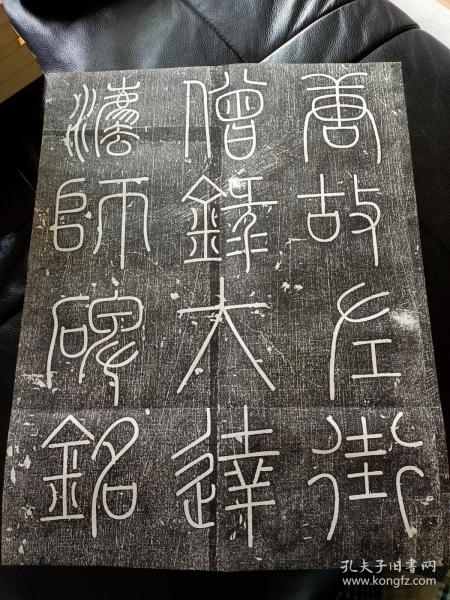 唐故左街
僧録大達
灋師碑銘
孔夫子旧书网
www.kongfz.com